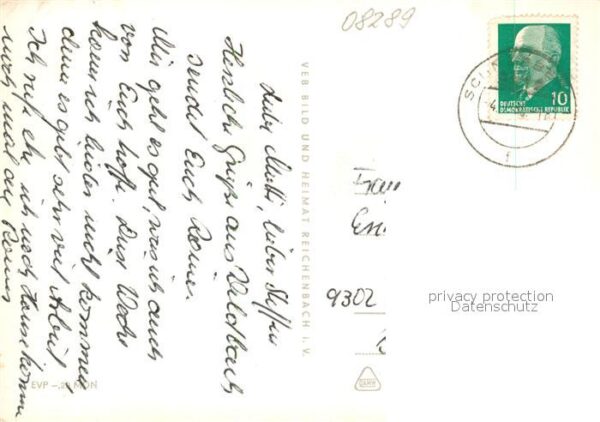 08289
Liebe Mutti, lieber Steffen
Herzliche Grüße aus Wildbach
sendet Euch Rainer.
Mir geht es gut, was ich auch
von Euch hoffe. Diese Woche
kann ich leider nicht kommen
denn es gibt sehr viel Arbeit
Ich ruf ehe ich nach Hause komme
noch mal an
VEB BILD UND HEIMAT REICHENBACH i. V.
EVP -,20 MDN
DEUTSCHE
DEMOKRATISCHE REPUBLIK
10
9302
privacy protection
Datenschutz